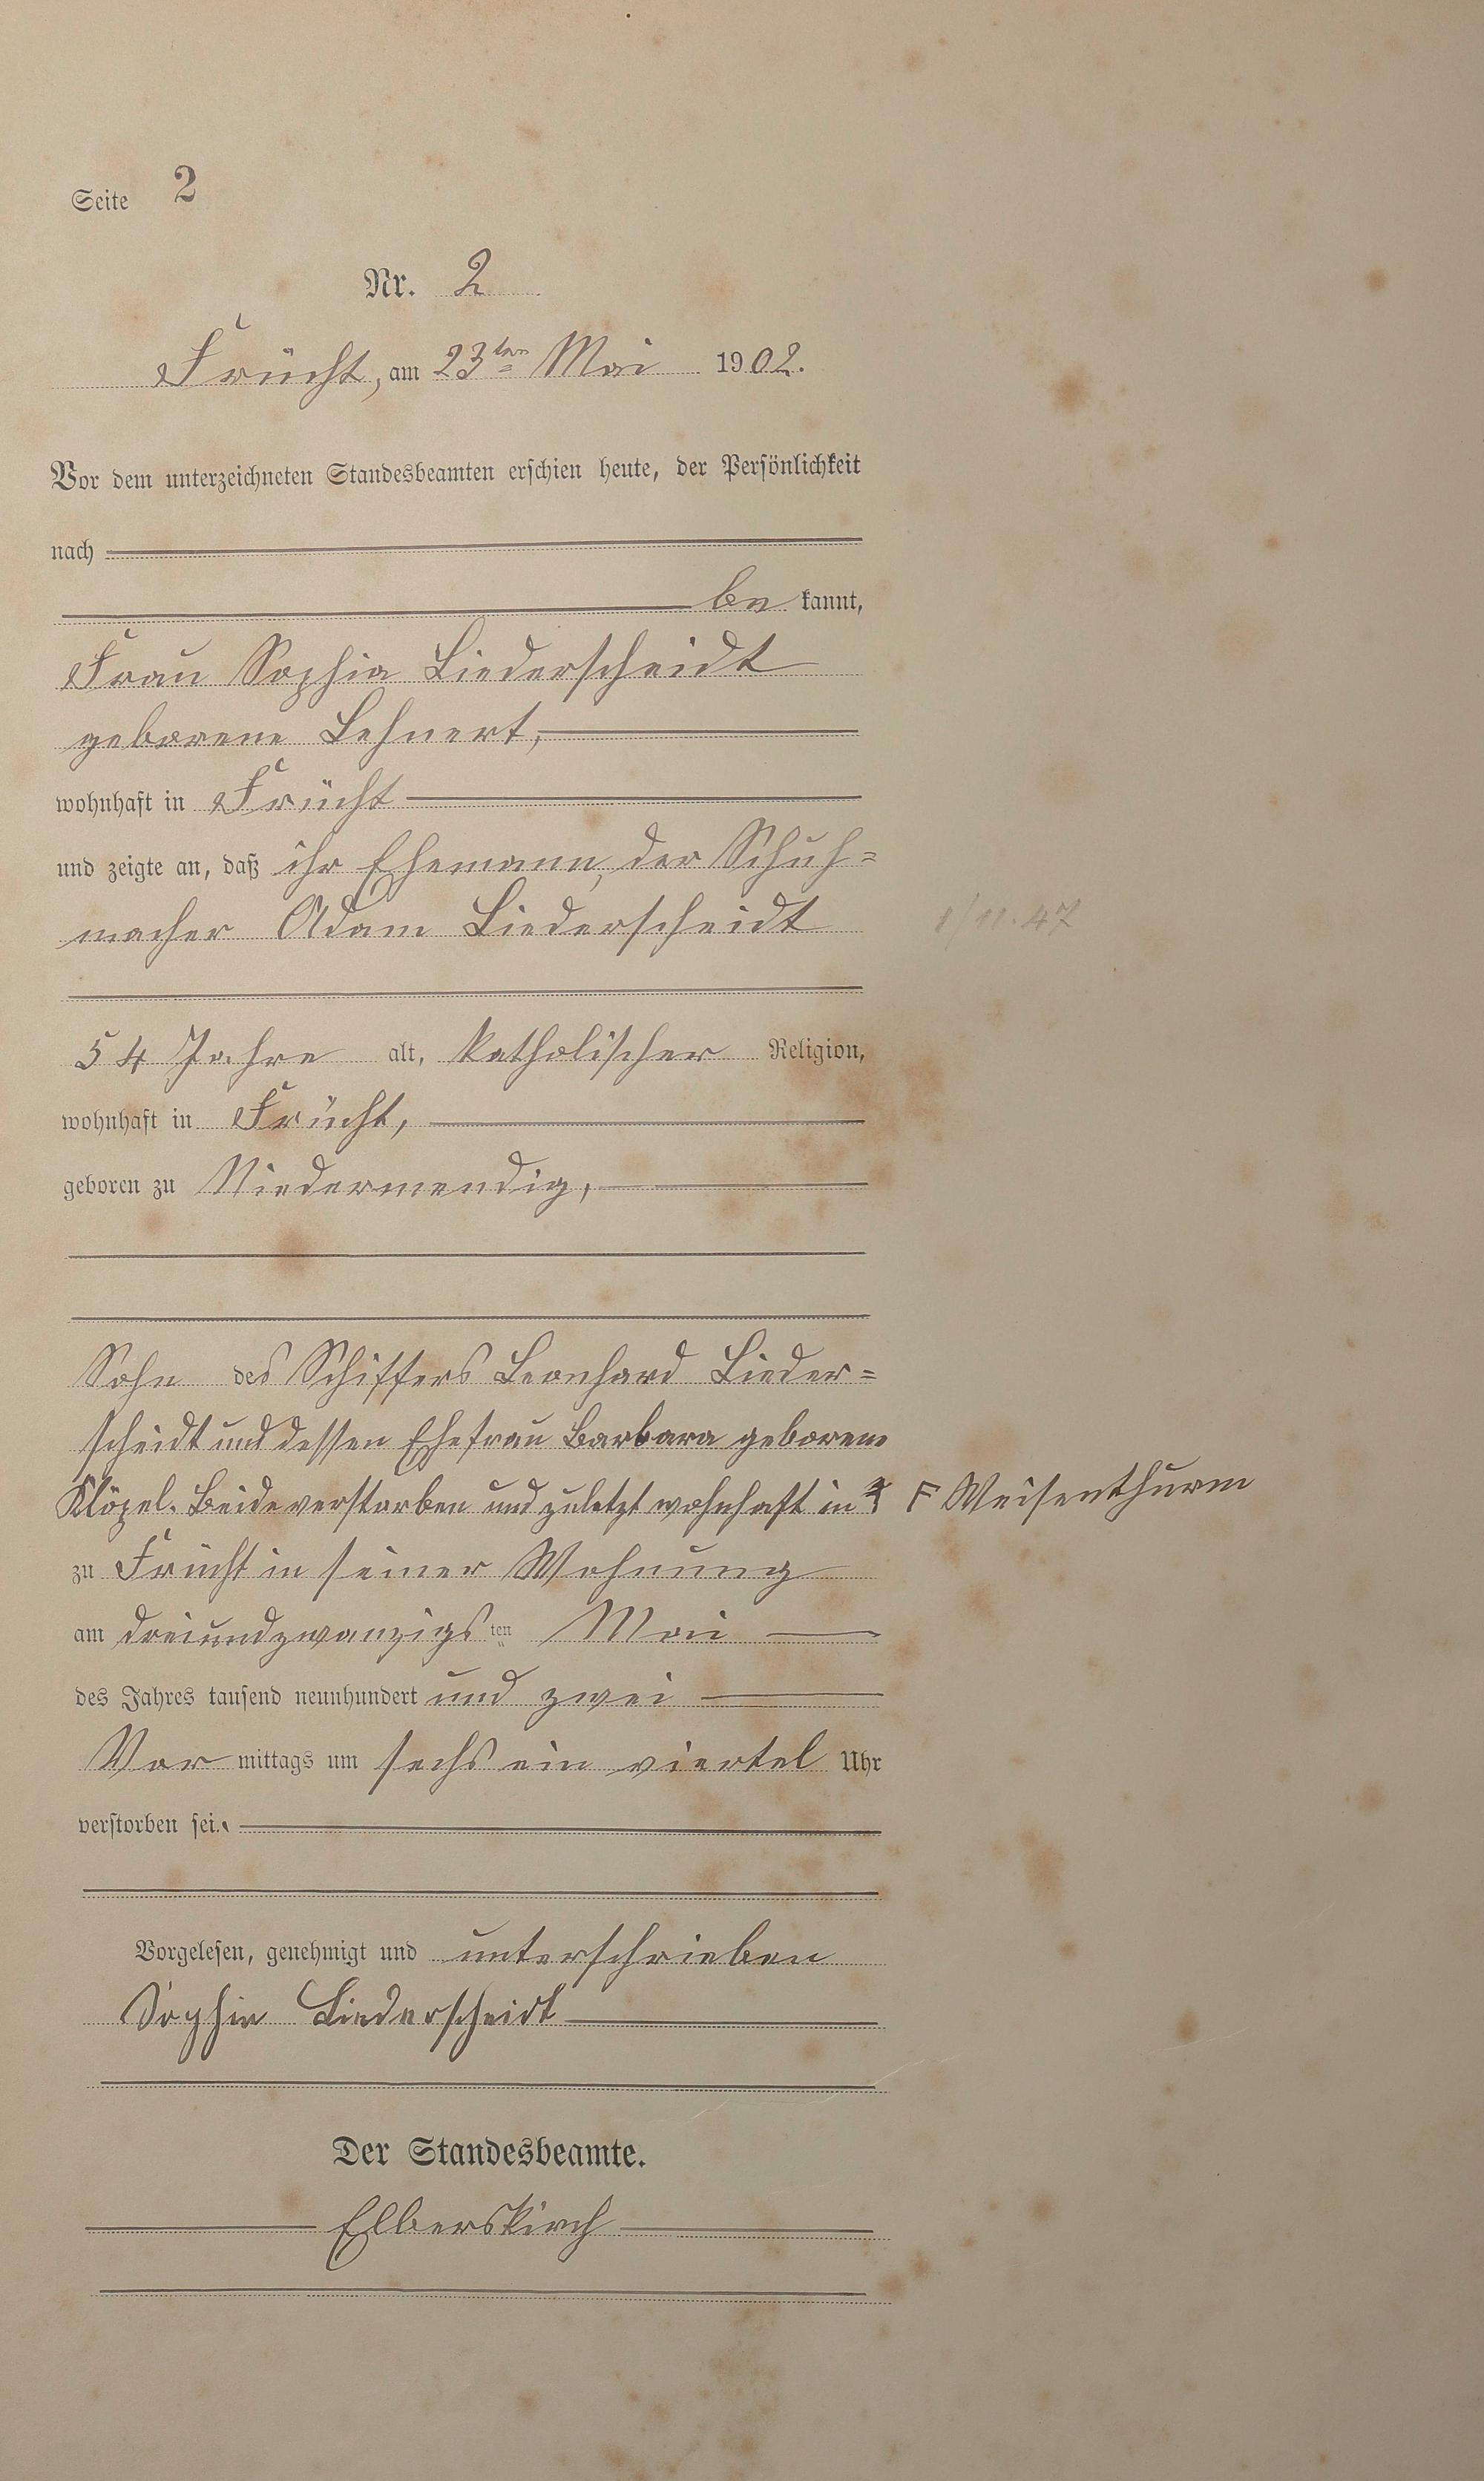 Seite 2
Nr. 2
Frücht, am 23ten Mai 1902.
Vor dem unterzeichneten Standesbeamten erschien heute, der Persönlichkeit
nach
be kannt,
Frau Sophia Liederscheidt
geborene Lehnert,
wohnhaft in Frücht
und zeigte an, daß ihr Ehemann, der Schuh=
macher Adam Liederscheidt
8/11.47
54 Jahre alt, katholischer Religion,
wohnhaft in Frücht,
geboren zu Niedermendig,
Sohn des Schiffers Leonhard Lieder=
scheidt und dessen Ehefrau Barbara geborene
Klöpel. Beide verstorben und zuletzt wohnhaft in F F Weisenthurm
zu Frücht in seiner Wohnung
am dreiundzwanzigs ten Mai
des Jahres tausend neunhundert und zwei
Vor mittags um sechs ein viertel Uhr
verstorben sei.
Vorgelesen, genehmigt und unterschrieben
Sophie Liederscheidt
Der Standesbeamte.
Elberskirch